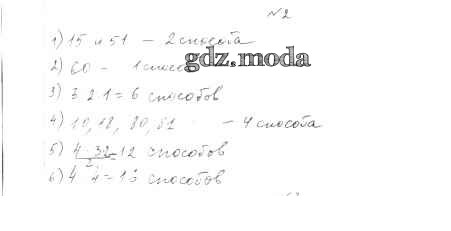 №2
1) 15 и 51 — 2 способа
2) 60 — 1 способ
gdz.moda
3) 3·2·1 = 6 способов
4) 10, 18, 80, 81 — 4 способа
5) 4·3 12 способов
6) 4·4 = 16 способов